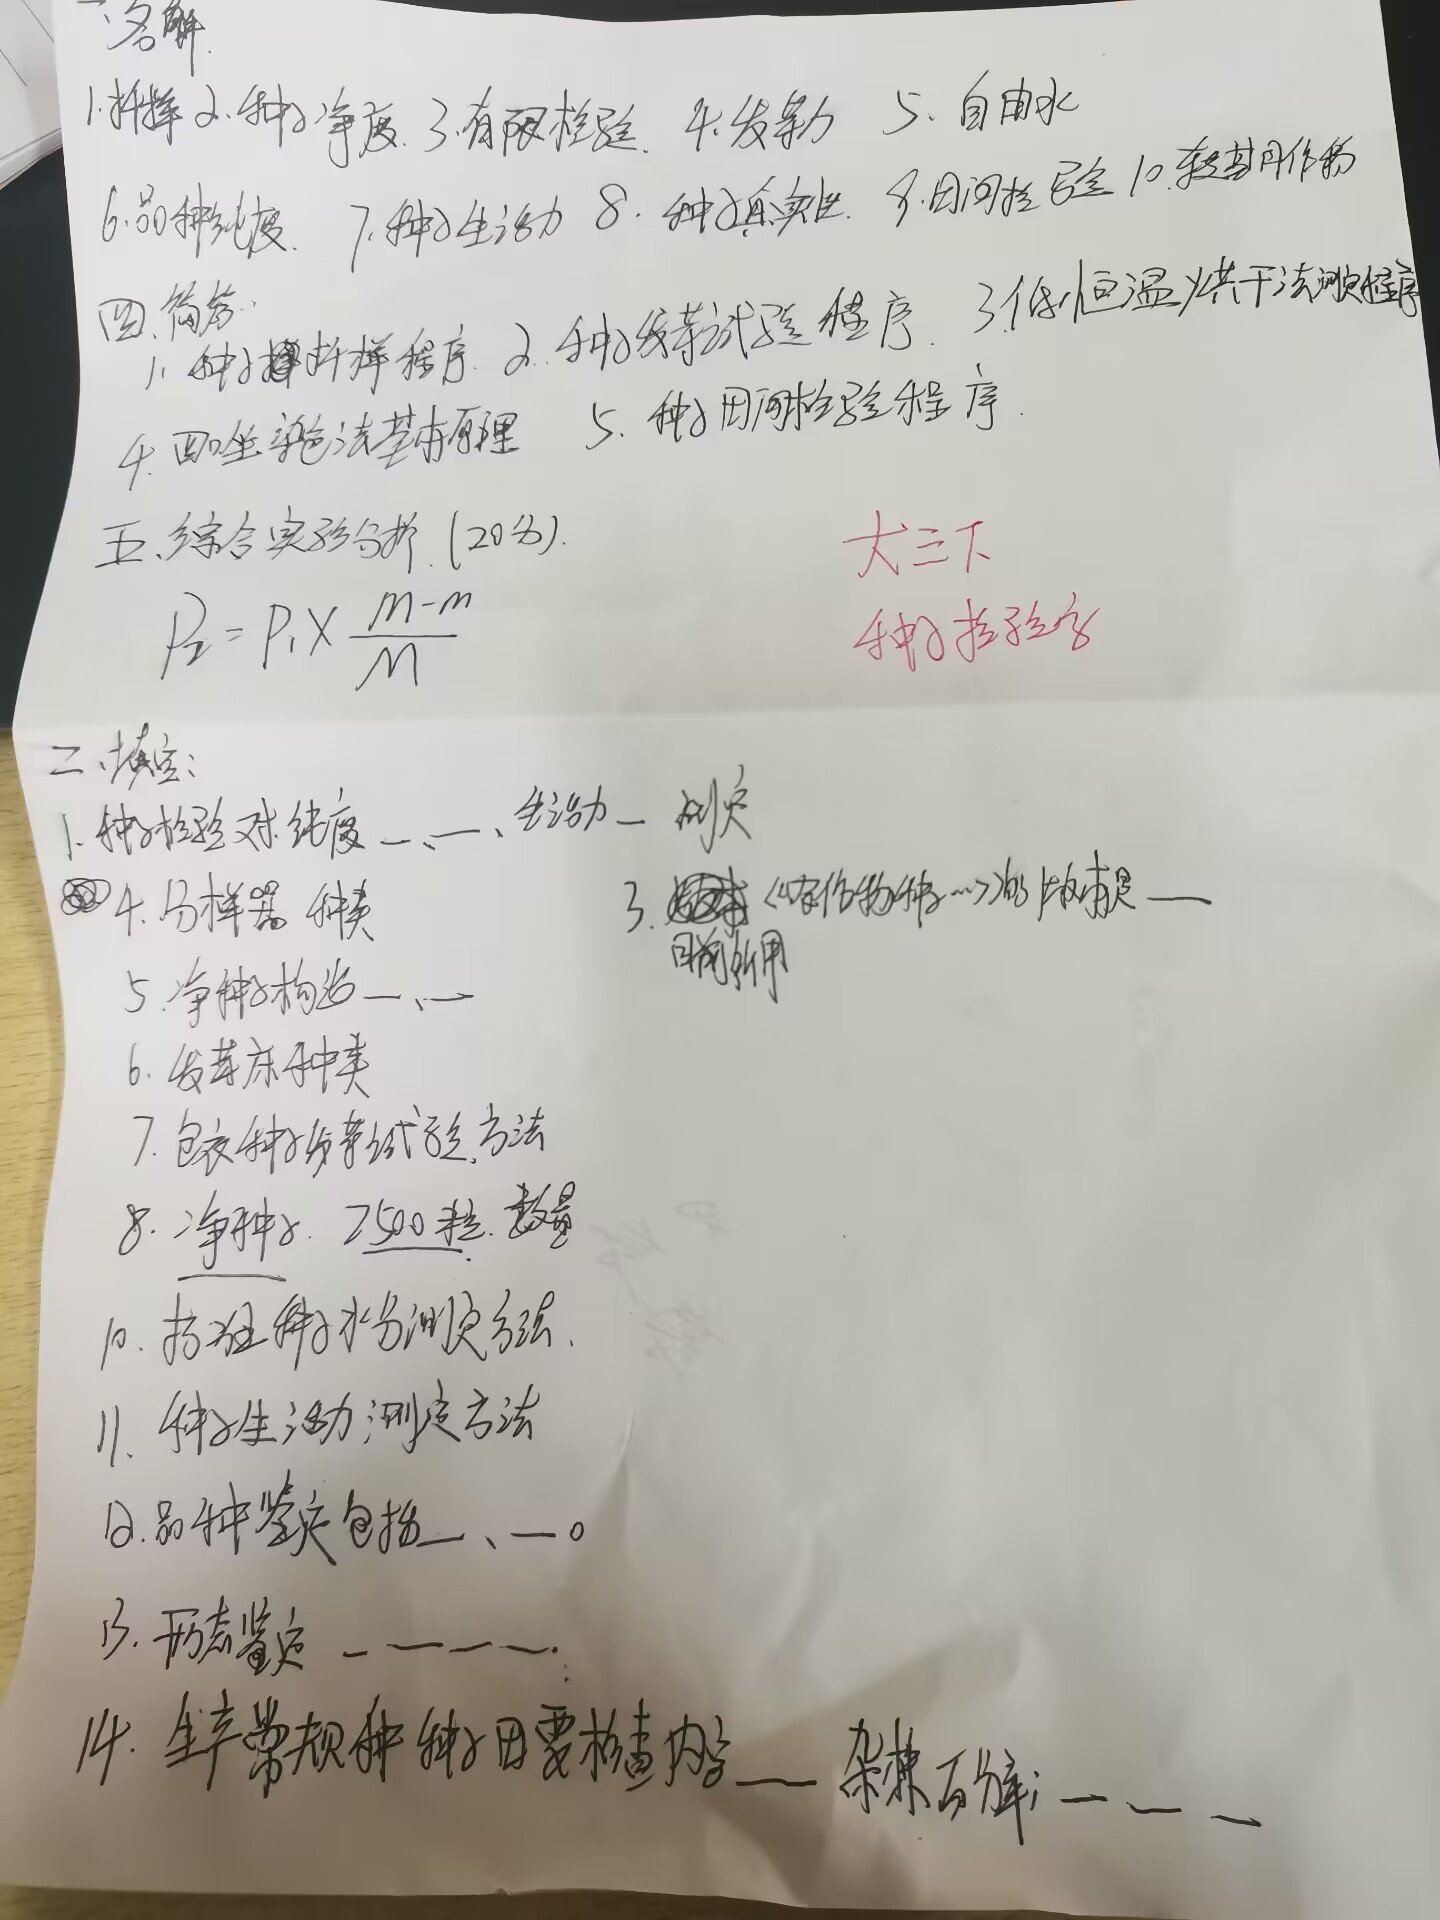 一、名解.
1.扦样 2.种子净度. 3.有限检验. 4.发芽力 5.自由水
6.品种纯度. 7.种子生活力 8.种子真实性. 9.田间检验 10.较其同作物
四、简答.
1.种子扦样程序. 2.种子发芽试验程序. 3.低恒温烘干法测定程序
4.四唑染色法基本原理 5.种子田间检验程序.
五、综合实验分析.(20分).
P₂=P₁×(M-m)/M
大三下
种子检验学
二、填空:
1.种子检验对纯度_、_、生活力_测定
4.分样器种类 3.《农作物种子…》的版本是_
目前所用
5.净种子构造_、_
6.发芽床种类
7.包衣种子发芽试验方法
8.净种子. 2500粒.数量
10.种子水分测定方法.
11.种子生活力测定方法
12.品种鉴定包括_、_。
13.形态鉴定_ _ _ _.
14.生产常规种种子田要检查内容_ 杂株百分率;_ _ _